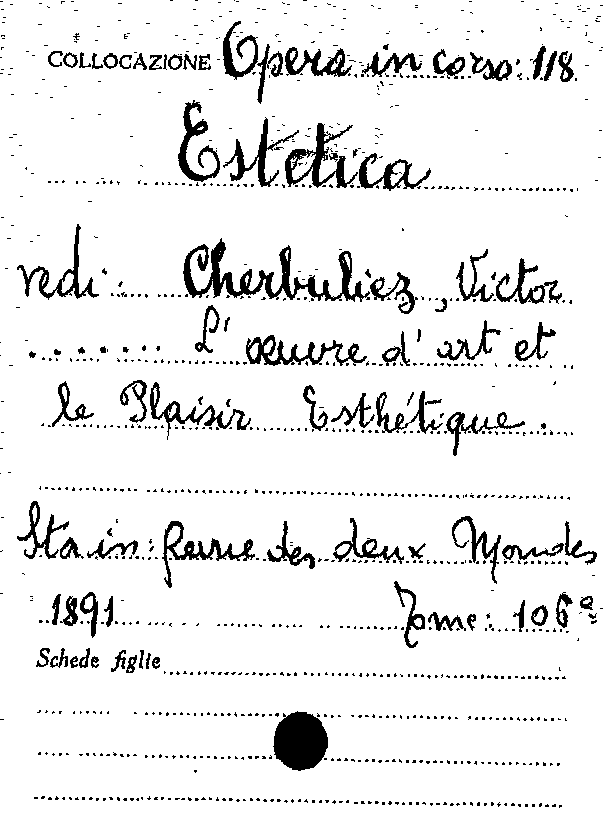 COLLOCAZIONE Opera in corso: 118
Estetica
vedi: Cherbuliez, Victor
....... L'œuvre d'art et
le Plaisir Esthétique.
Sta in: Revue des deux Mondes
1891 Tome: 106º
Schede figlie